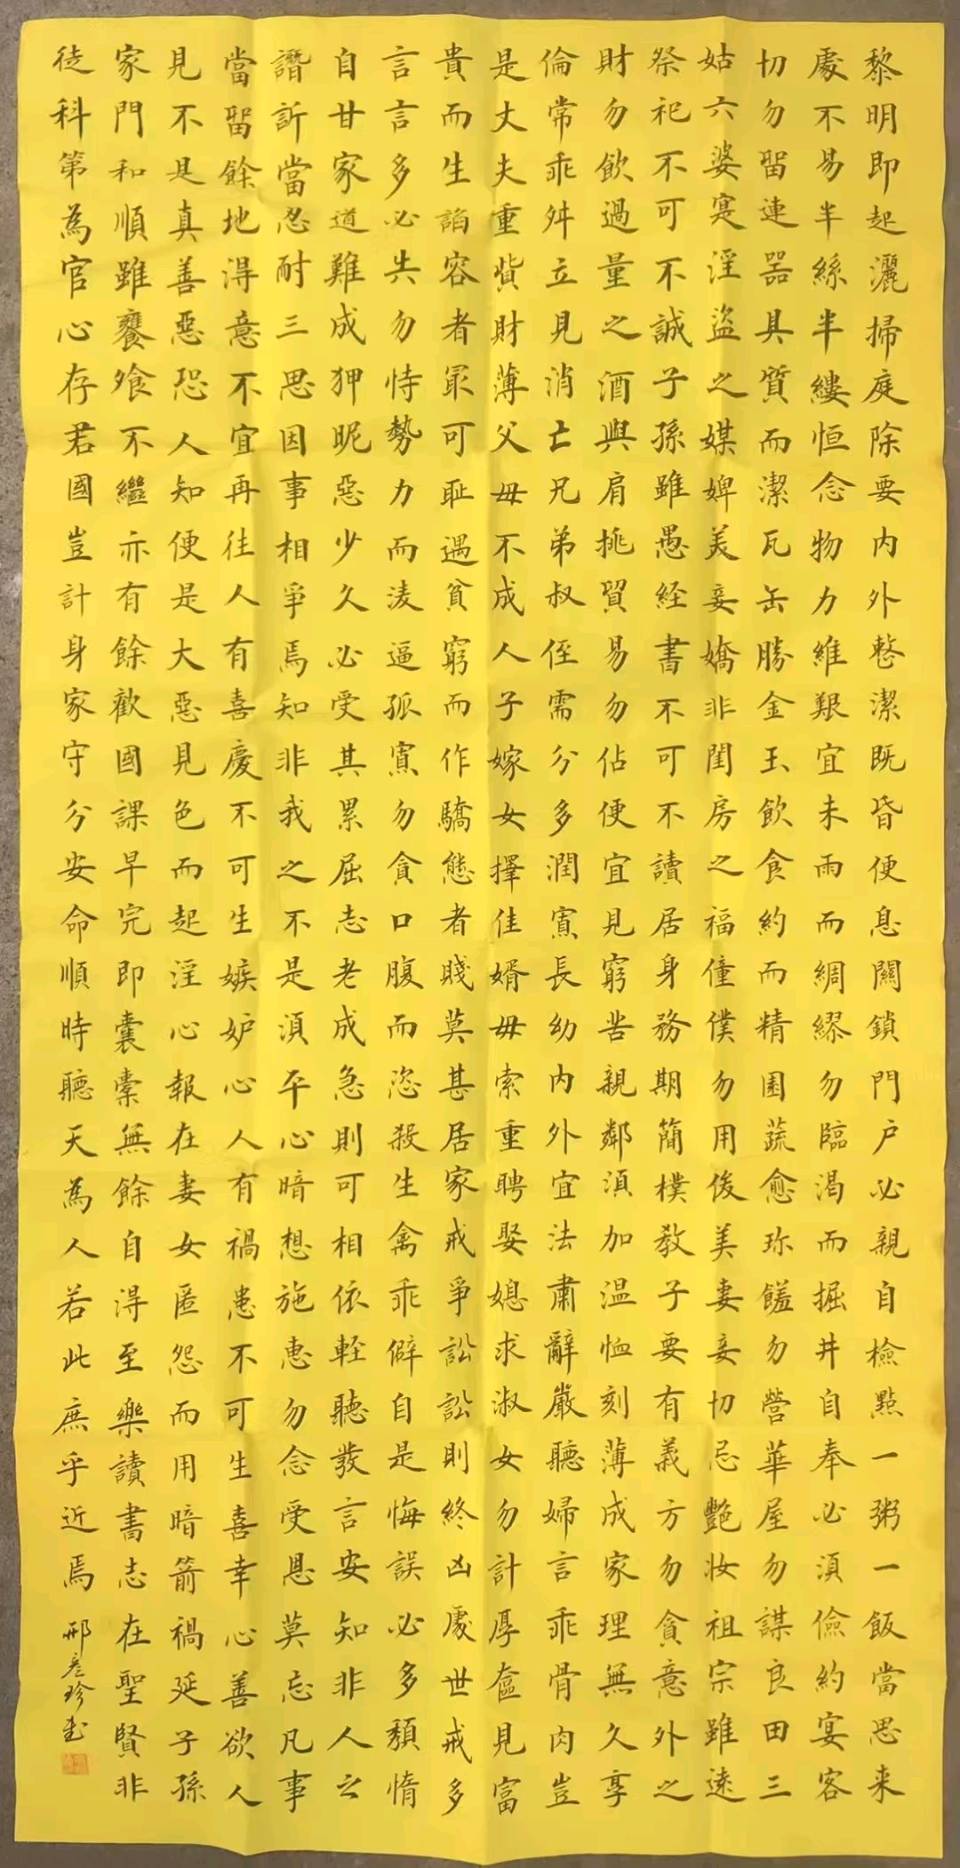 黎明即起灑掃庭除要內外整潔既昏便息關鎖門户必親自檢點一粥一飯當思来
處不易半絲半縷恒念物力維艱宜未雨而綢繆勿臨渴而掘井自奉必須儉約宴客
切勿留連器具質而潔瓦缶勝金玉飲食約而精園蔬愈珍饈勿營華屋勿謀良田三
姑六婆寔淫盜之媒婢美妾嬌非閨房之福僮僕勿用俊美妻妾切忌艷妝祖宗雖遠
祭祀不可不誠子孫雖愚經書不可不讀居身務期簡樸教子要有義方勿貪意外之
財勿飲過量之酒與肩挑貿易勿佔便宜見窮苦親鄰須加温恤刻薄成家理無久享
倫常乖舛立見消亡兄弟叔侄需分多潤寡長幼內外宜法肅辭嚴聽婦言乖骨肉豈
是丈夫重貲財薄父母不成人子嫁女擇佳婿毋索重聘娶媳求淑女勿計厚奩見富
貴而生諂容者最可恥遇貧窮而作驕態者賤莫甚居家戒爭訟訟則終凶處世戒多
言言多必失勿恃勢力而淩逼孤寡勿貪口腹而恣殺生禽乖僻自是悔誤必多頹惰
自甘家道難成狎昵惡少久必受其累屈志老成急則可相依輕聽發言安知非人之
譖訴當忍耐三思因事相爭焉知非我之不是須平心暗想施惠勿念受恩莫忘凡事
當留餘地得意不宜再往人有喜慶不可生嫉妒心人有禍患不可生喜幸心善欲人
見不是真善惡恐人知便是大惡見色而起淫心報在妻女匿怨而用暗箭禍延子孫
家門和順雖饔飧不繼亦有餘歡國課早完即囊橐無餘自得至樂讀書志在聖賢非
徒科第為官心存君國豈計身家守分安命順時聽天為人若此庶乎近焉 邢彥珍書